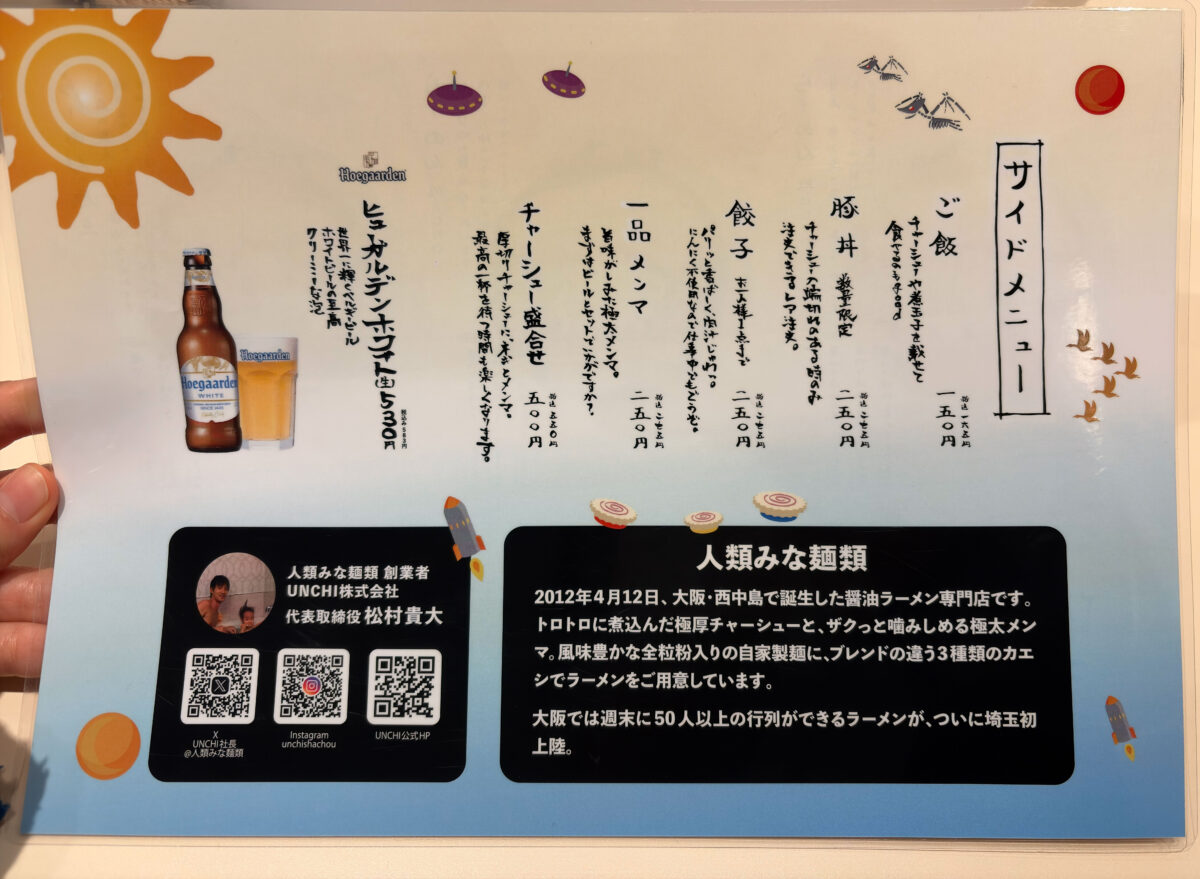 サイドメニュー
ご飯
一五〇円
税込 一六五円
チャーシューや煮玉子を載せて
食べるのもgood
豚丼 数量限定
二五〇円
税込 二七五円
チャーシューの端切れのある時のみ
注文できるレア注文。
餃子 お一人様1点まで
二五〇円
税込 二七五円
パリーッと香ばしく、肉汁じゅわっ。
にんにく不使用なので仕事中でもどうぞ。
一品メンマ
二五〇円
税込 二七五円
旨味がしみた極太メンマ。
まずはビールとセットでいかがですか?
チャーシュー盛合せ
五〇〇円
税込 五五〇円
厚切りチャーシューに、味玉とメンマ。
最高の一杯を待つ時間も楽しくなります。
Hoegaarden
ヒューガルデンホワイト(生)530円
税込み583円
世界一に輝くベルギービール
ホワイトビールの至高
クリーミーな泡
Hoegaarden
WHITE
SINCE 1445
Hoegaarden
人類みな麺類 創業者
UNCHI株式会社
代表取締役 松村貴大
X
UNCHI社長
@人類みな麺類
Instagram
unchishachou
UNCHI公式HP
人類みな麺類
2012年4月12日、大阪・西中島で誕生した醤油ラーメン専門店です。
トロトロに煮込んだ極厚チャーシューと、ザクっと噛みしめる極太メン
マ。風味豊かな全粒粉入りの自家製麺に、ブレンドの違う3種類のカエ
シでラーメンをご用意しています。
大阪では週末に50人以上の行列ができるラーメンが、ついに埼玉初
上陸。